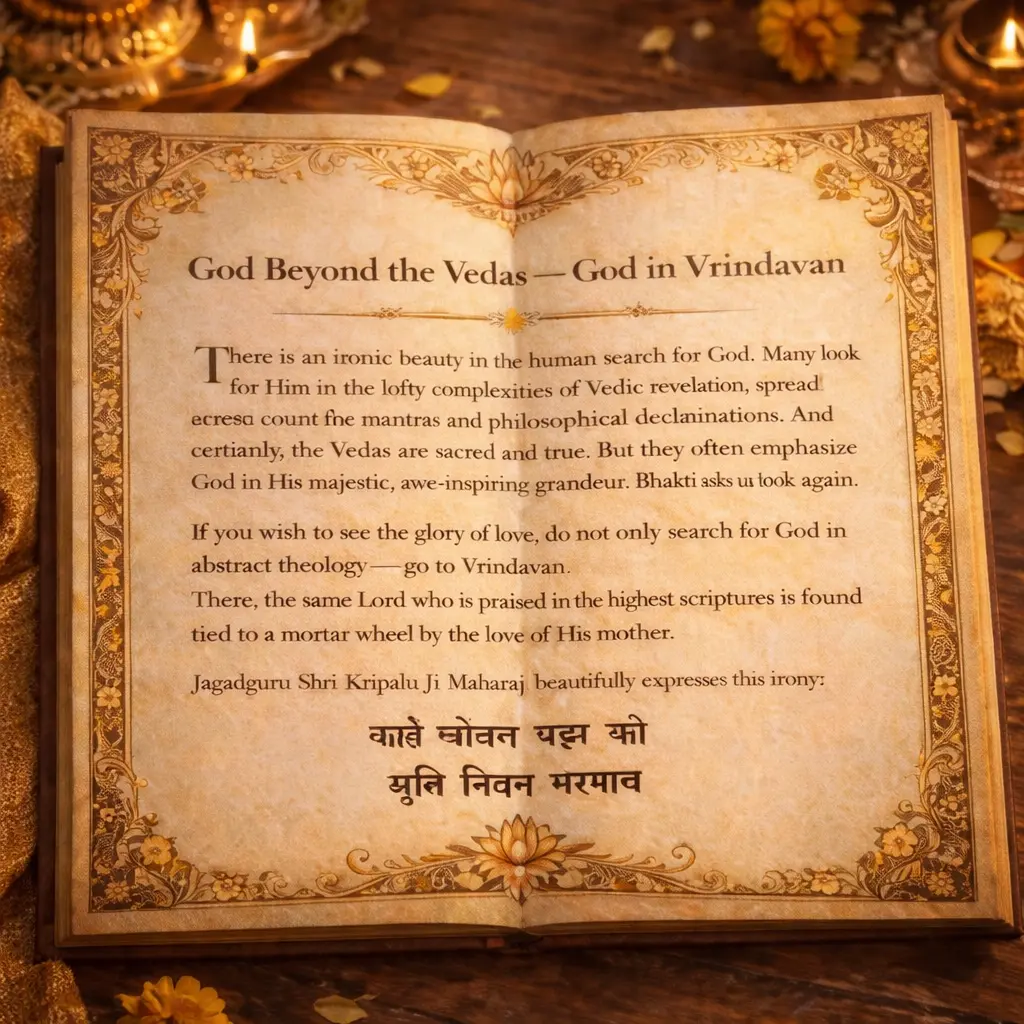 God Beyond the Vedas — God in Vrindavan
There is an ironic beauty in the human search for God. Many look
for Him in the lofty complexities of Vedic revelation, spread
acresa count fhe mantras and philosophical declaninations. And
certianly, the Vedas are sacred and true. But they often emphasize
God in His majestic, awe-inspiring grandeur. Bhakti asks us look again.
If you wish to see the glory of love, do not only search for God in
abstract theology — go to Vrindavan.
There, the same Lord who is praised in the highest scriptures is found
tied to a mortar wheel by the love of His mother.
Jagadguru Shri Kripalu Ji Maharaj beautifully expresses this irony:
निवन मरमाव